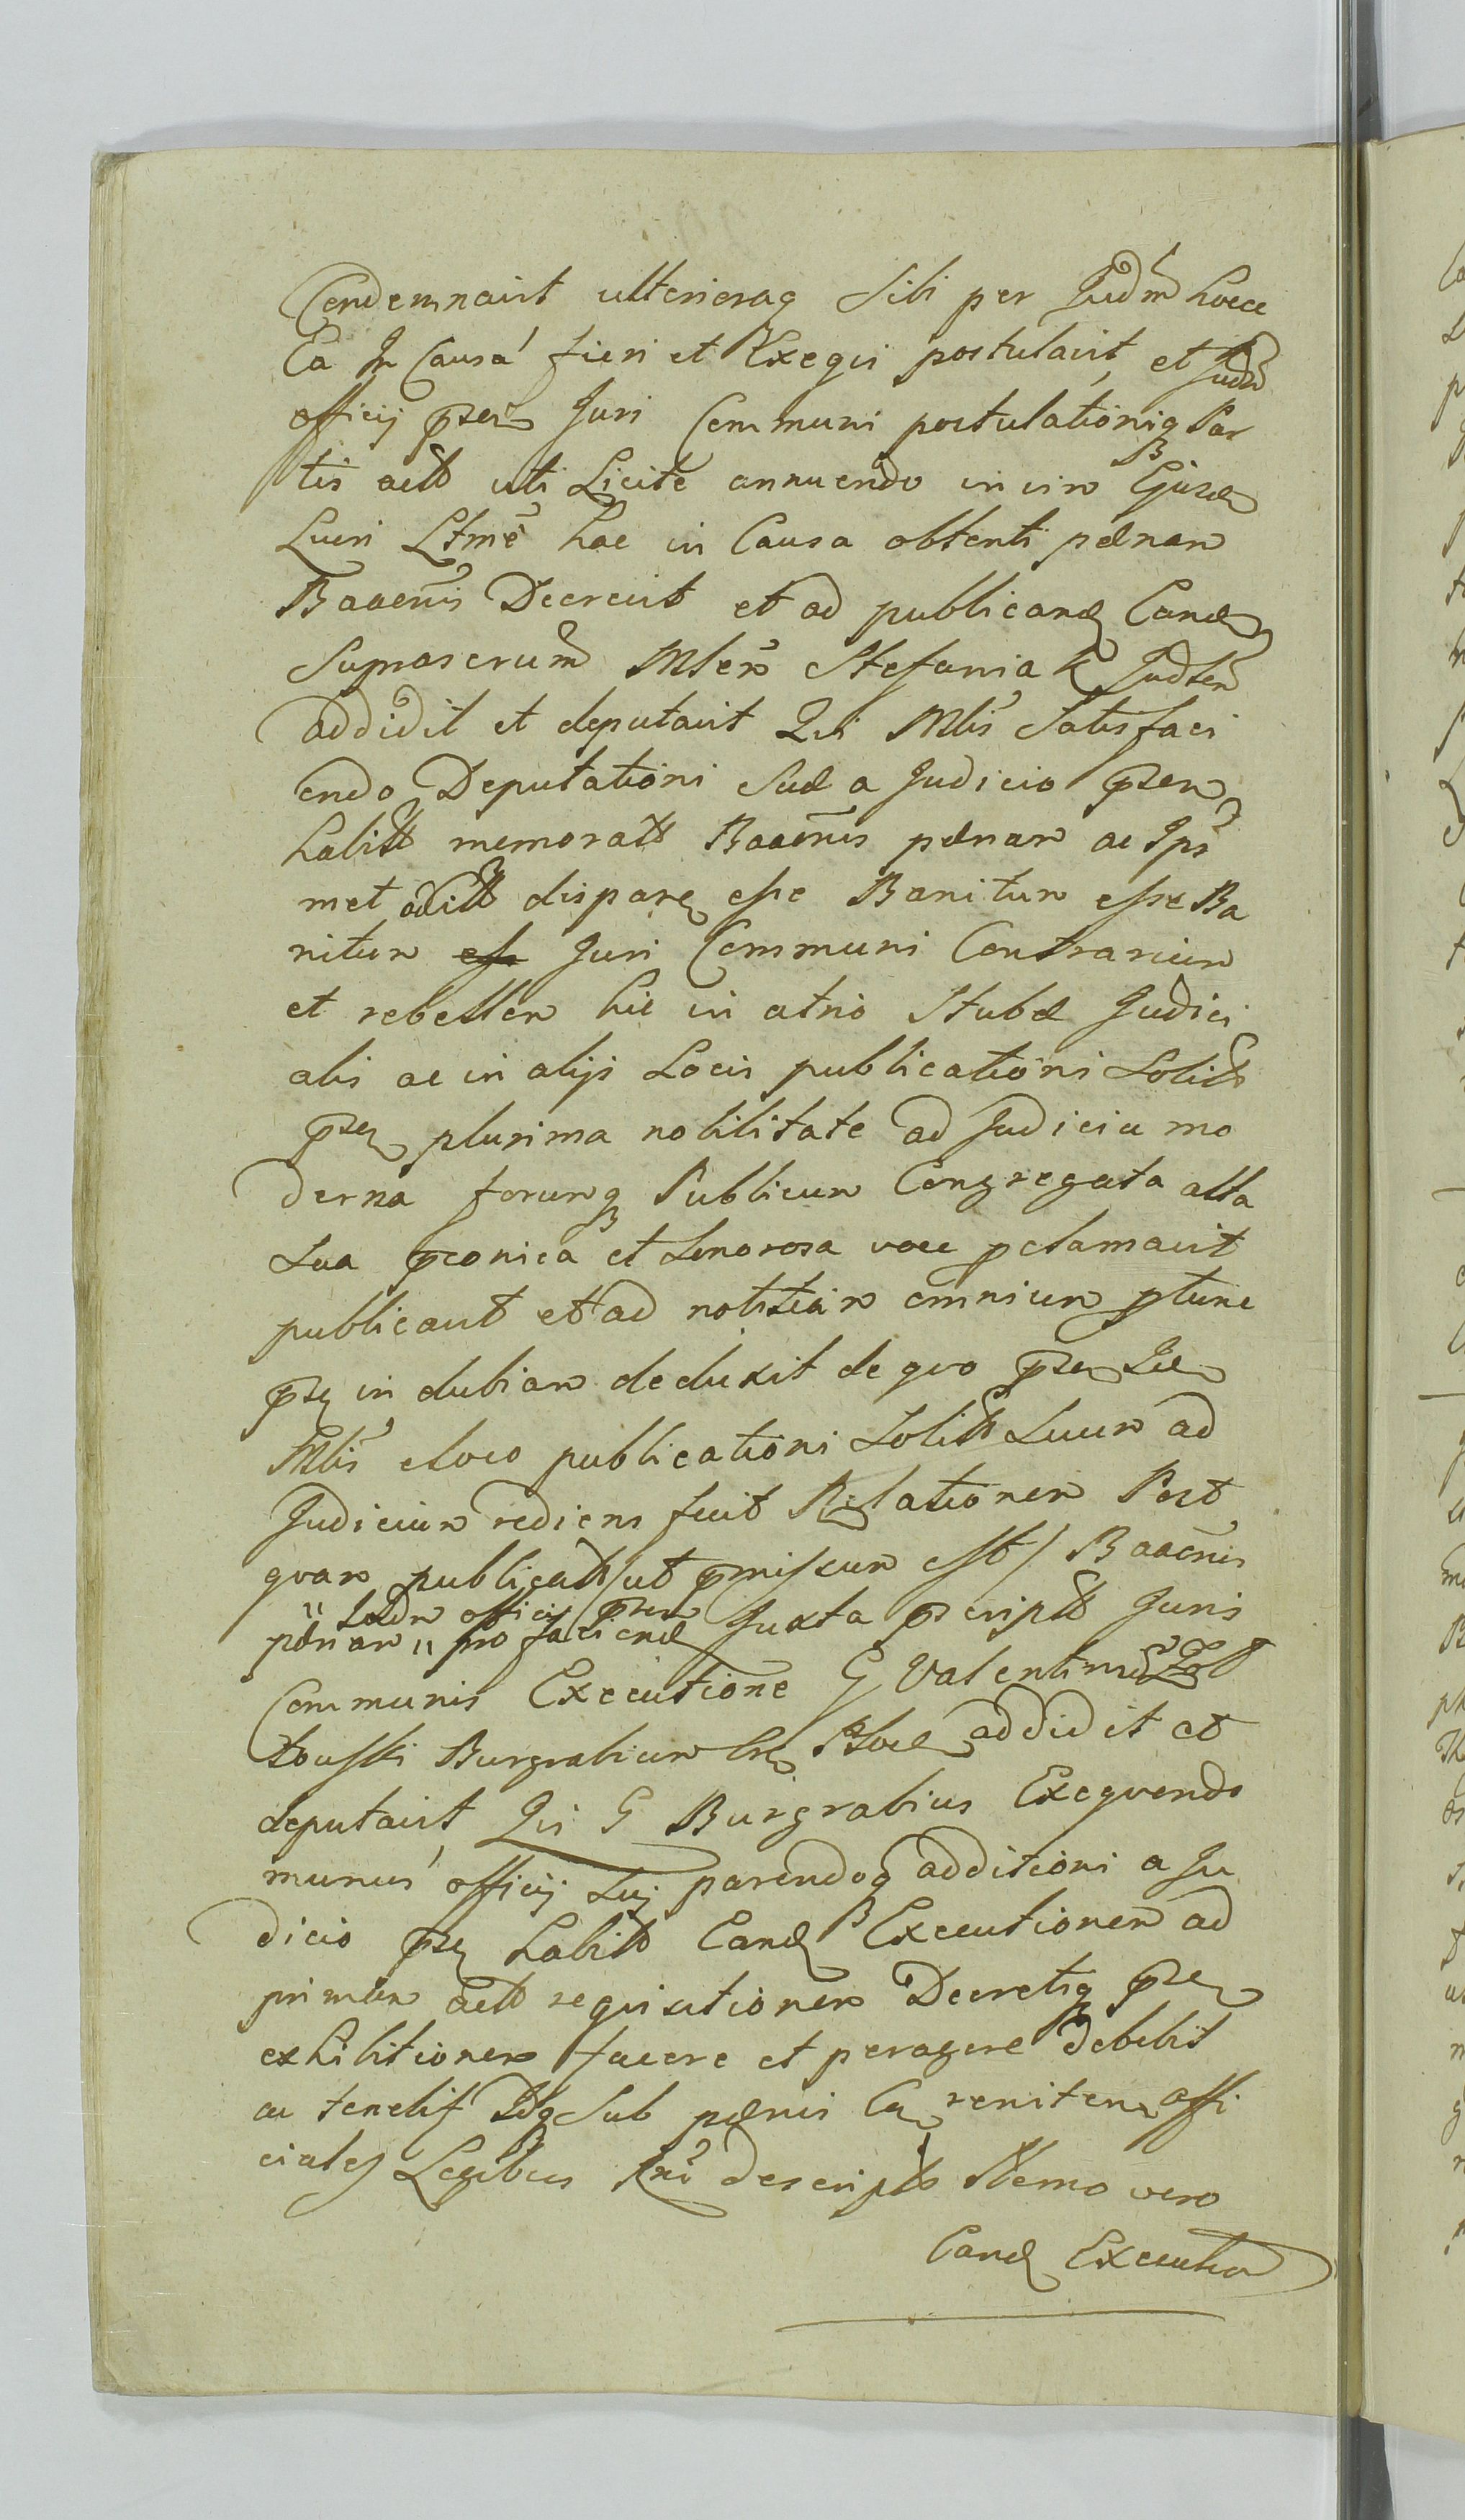 Condemnavit ulterioraq sibi per Judm hocce
Ea In Causa fieri et Exeqvi postulavit, et Judm
officij psens Juri Communi postulationiq Par
tis actt uti Licite annuendo in vim Ejusd
Lucri Ltme hac in Causa obtenti pænam
Baaenis Decrevit et ad publicand Eand
Suprascrum Mlem Stefaniak Judlem
addidit et deputavit Qui Mlis Satisfaci
endo Deputationi Suæ a Judicio psen
habitt memoratt Baaenis pænam ac Ips
met citt dispare esse Banitum esse Ba
nitum Juri Communi Contrarium
et rebellem hic in atrio Stubæ Judici
alis ac in alijs Locis publicationi Solitt
pse plurima nobilitate ad Judicia mo
derna forumq Publicum Congregata alta
Sua pconica et Sonorosa voce pclamavit
publicavit et ad notitiam omnium ptunc
pse in dubiam deduxit de qvo psen
Mlis eloco publicationi Solitt Suum ad
Judicium rediens fecit Relationem Post
qvam publicatt /ut pmissum est/ Baaenis
" Iudm officij psens
pænam " pro faciend Juxta pscriptt Juris
Communis Executione G Valentinum
kowski Burgrabium Cs Ploc addidit et
deputavit Qui G Burgrabius Exeqvendo
munus officij Sui parendoq additioni a Ju
dicio pse habitt Eand Executionem ad
primam actt reqvisitionem Decretiq pse
exhibitionem facere et peragere debebit
ac tenebit Idq Sub pænis Ca reniten offi
ciales Legibus Rni descriptis Nemo vero
Eand Execution